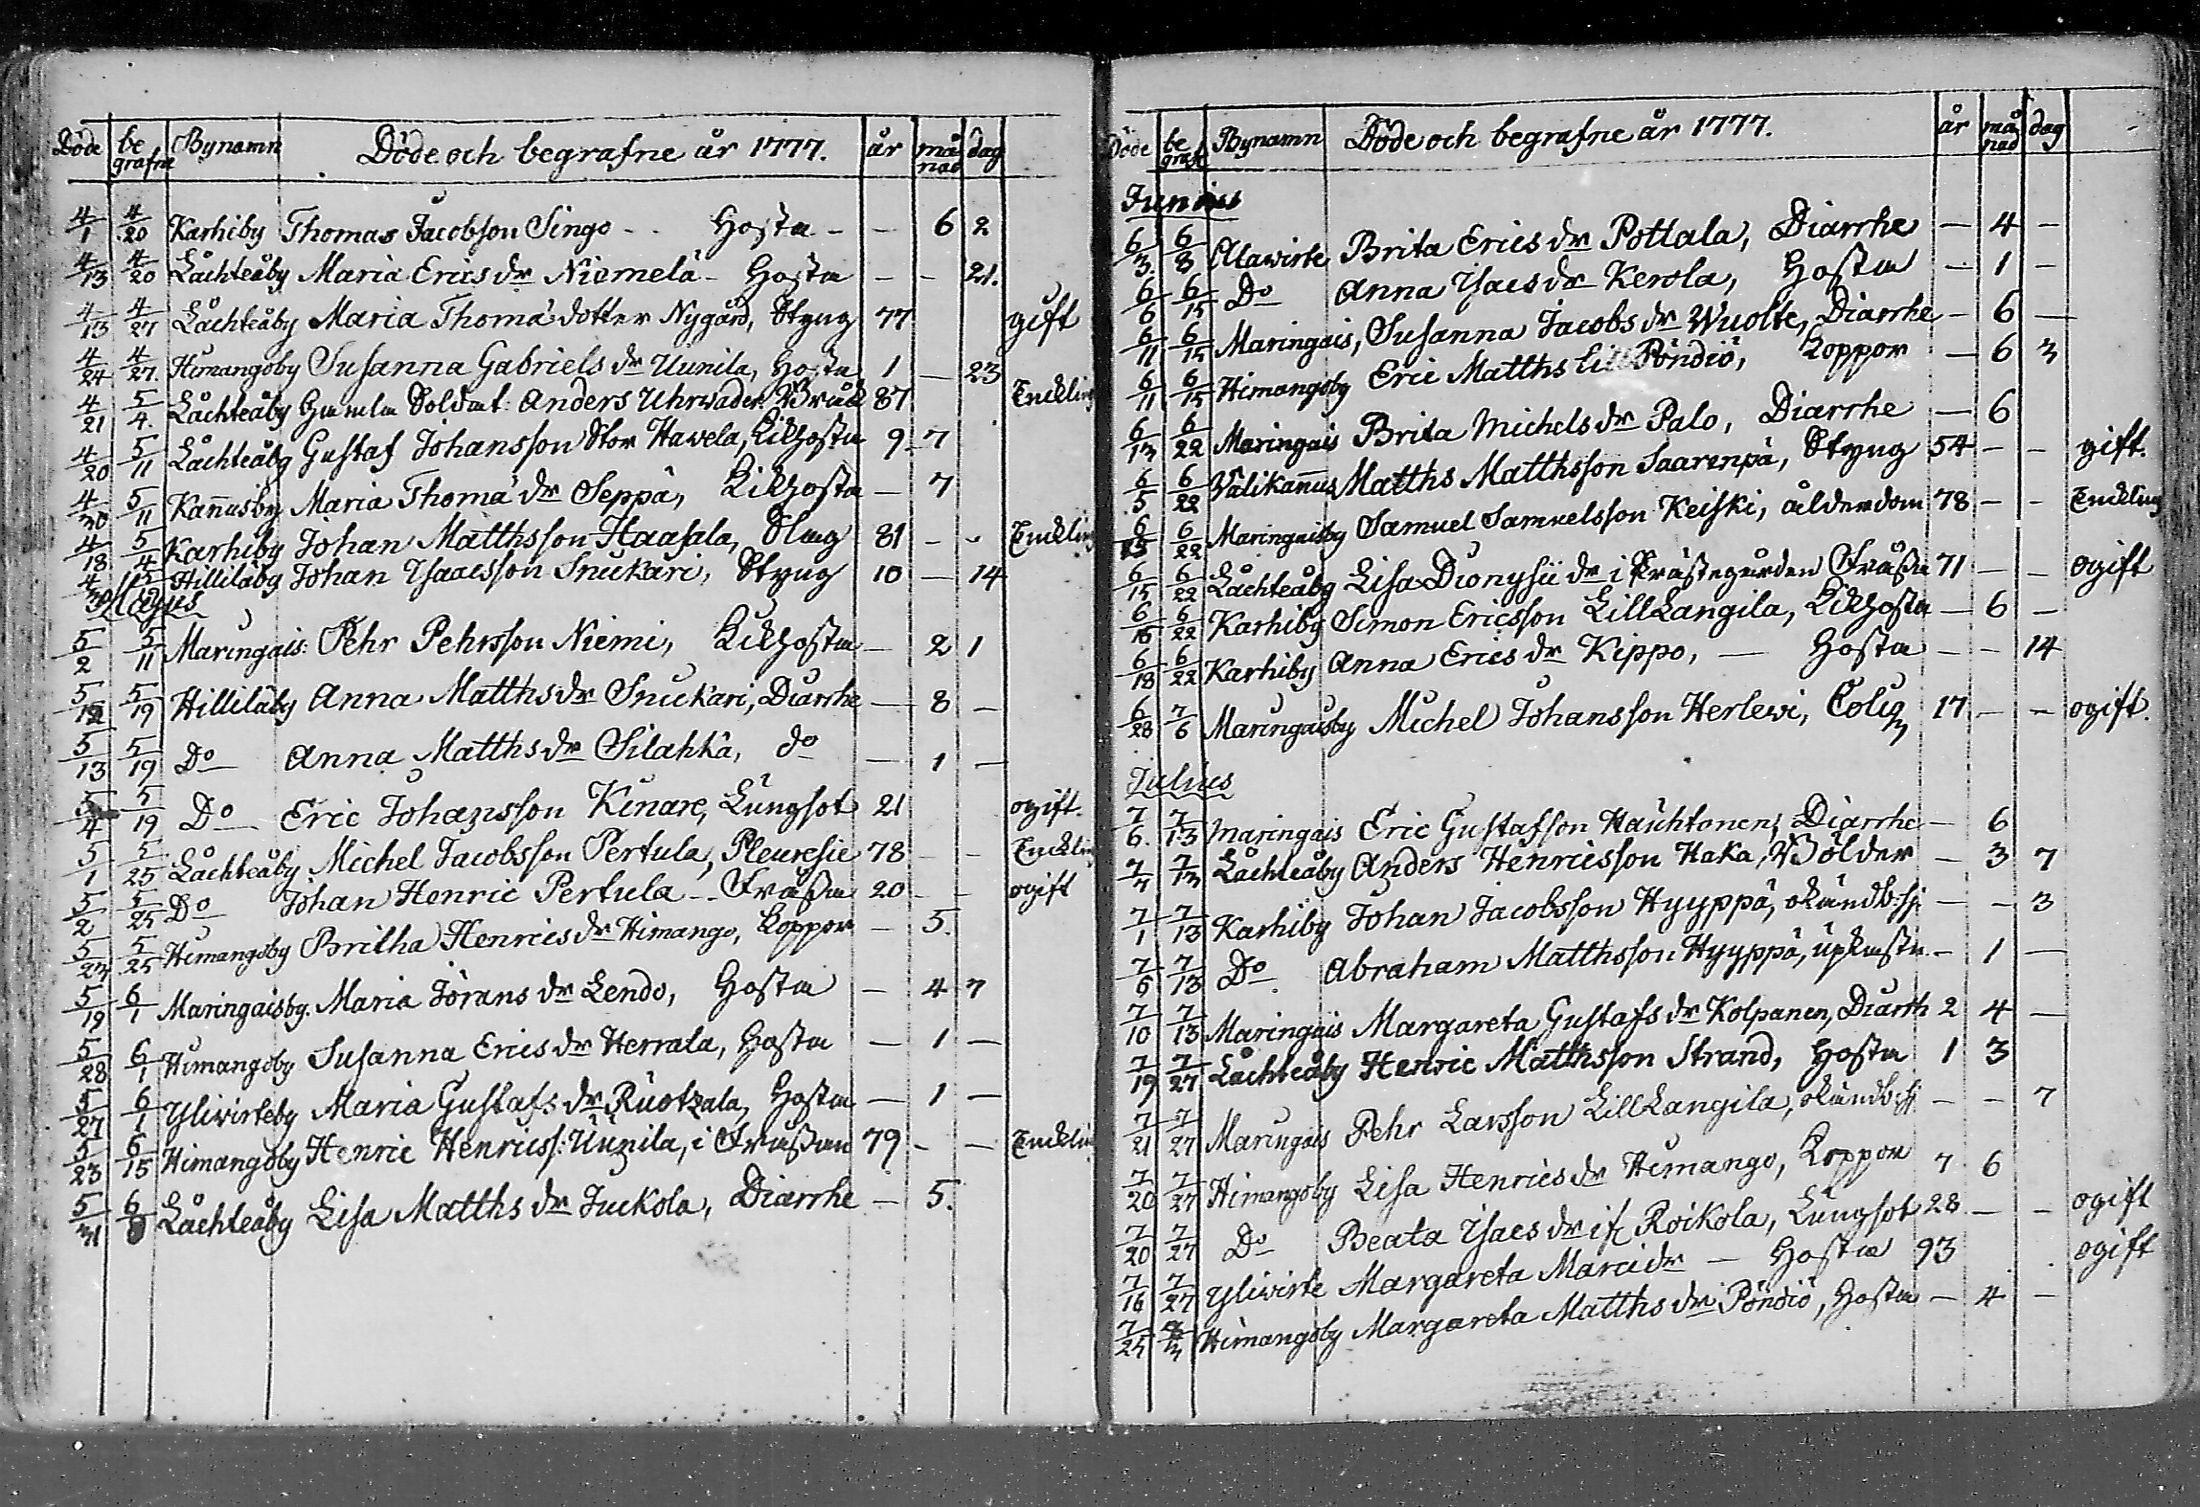 Döde begrafne Bynamn Döde och begrafne år 1777. år månad dag
4/1 4/20 Karhiby Thomas Jacobsson Singo - - Hosta - - 6 2
4/13 4/20 Låchteåby Maria Erics dr Niemelä - Hosta - - 21.
4/13 4/27 Låchteåby Maria Thomä dotter Nygård, Styng 77 gift
4/24 4/27. Himangoby Susanna Gabriels dr Uunila, Hosta 1 - 23
4/21 5/4. Låchteåby Gamla Soldat: Anders Uhrwader Bråck 87 Enckling
4/20 5/11 Låchteåby Gustaf Johansson Stor Havela, Kikhosta 9 - 7
4/30 5/11 Kan̄usby Maria Thomä dr Seppä, Kikhosta - 7
4/18 5/4 Karhiby Johan Matthsson Haasala, Slag 81 - - Enckling
Hilliläby Johan Isaacsson Snickari, Styng 10 - 14
Majus
5/2 5/11 Maringais: Pehr Pehrsson Niemi, Kikhosta - 2 1
5/12 5/19 Hilliläby Anna Matths dr Snickari, Diarrhe - 8 -
5/13 5/19 Do Anna Matths dr Silahka, do - 1 -
5/4 5/19 Do Eric Johansson Kinare, Lungsot 21 ogift.
5/1 5/25 Låchteåby Michel Jacobsson Pertula, Pleuresie 78 - - Enckling
5/2 5/25 Do Johan Henric Pertula - - Fråssa 20 - - ogift
5/23 5/25 Himangoby Britha Henrics dr Himango, Koppor - 5.
5/19 6/1 Maringaisby. Maria Jörans dr Lendo, Hosta - 4 7
5/28 6/1 Himangoby Susanna Erics dr Herrala, Hosta - 1 -
5/27 6/1 Ylivirteby Maria Gustafs dr Ruotzala, Hosta - 1 -
5/23 6/15 Himangoby Henric Henricss: Uunila, i Frussan 79 - - Enckling
5/31 6/8 Låchteåby Lisa Matths dr Juckola, Diarrhe - 5.
Döde begrafne Bynamn Döde och begrafne år 1777. år månad dag
Junius
6/3. 6/8 Alawirte Brita Erics dr Pottala, Diarrhe - 4 -
6/6 6/15 Do Anna Isacs dr Kerola, Hosta - 1 -
6/11 6/15 Maringais, Susanna Jacobs dr Wuolte, Diarrhe - 6 -
6/11 6/15 Himangoby Eric Matths Lill Pöndiö, Koppor - 6 3
6/13 6/22 Maringais Brita Michels dr Palo, Diarrhe - 6
6/5 6/22 Välikan̄us Matths Matthsson Saarenpä, Styng 54 - - gift.
6/22 Maringaisby Samuel Samuelsson Keiski, ålderdom 78 - - Enckling
6/15 6/22 Låchteåby Lisa Dionysii dr i Prästegården Fråssa 71 - - Ogift
6/16 6/22 Karhiby Simon Ericsson Lill Langila, Kikhosta - 6 -
6/18 6/22 Karhiby Anna Erics dr Kippo, - Hosta - - 14
6/28 7/6 Maringaisby Michel Johansson Herlewi, Colig 17 - - ogift.
Julius
7/6. 7/13 Maringais Eric Gustafson Hauhtonen, Diarrhe - 6
7/13 Låchteåby Anders Henricsson Haka, Bölder - 3 7
7/1 7/13 Karhiby Johan Jacobsson Hyyppä, okändb:sj - - 3
7/6 7/13 Do Abraham Matthsson Hyyppä, upkastn - 1 -
7/10 7/13 Maringais Margareta Gustafs dr Kolpanen, Diarrh 2 4 -
7/19 7/27 Låchteåby Henric Matthsson Strand, Hosta 1 3
7/21 7/27 Maringais Pehr Larsson Lill Langila, okändb:sj - - 7
7/20 7/27 Himangoby Lisa Henrics dr Himango, Koppor 7 6
7/20 7/27 Do Beata Isacs dr Roikola, Lungsot 28 - - ogift
7/16 7/27 Ylivirte Margareta Marci dr - Hosta 93 ogift
7/25 Himangoby Margareta Matths dr Pöndiö, Hosta - 4 -